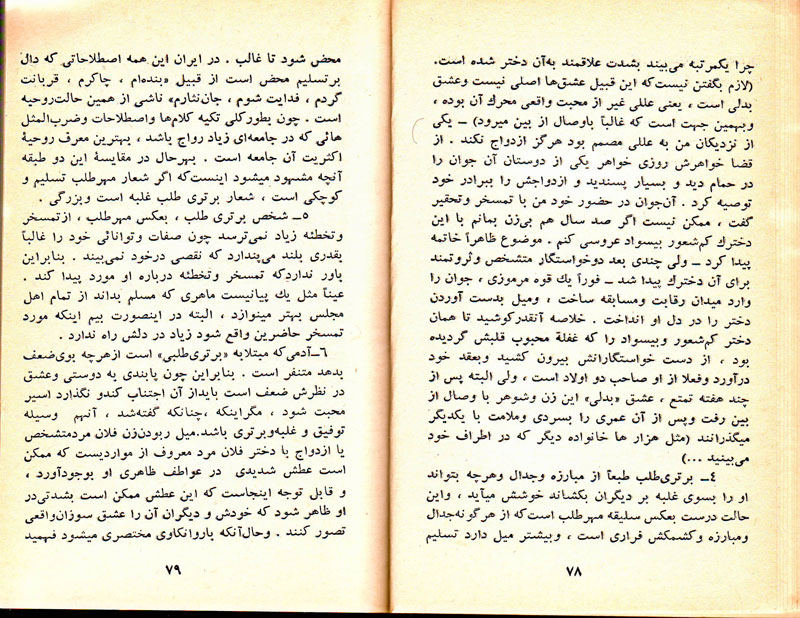 چرا یکمرتبه می‌بیند بشدت علاقمند به‌آن دختر شده است.
(لازم بگفتن نیست‌که این قبیل عشق‌ها اصلی نیست وعشق
بدلی است ، یعنی عللی غیر از محبت واقعی محرك آن بوده ،
وبهمین جهت است که غالباً باوصال از بین میرود) ـ یکی
از نزدیکان من به عللی مصمم بود هرگز ازدواج نکند . از
قضا خواهرش روزی خواهر یکی از دوستان آن جوان را
در حمام دید و بسیار پسندید و ازدواجش را ببرادر خود
توصیه کرد . آن‌جوان در حضور خود من با تمسخر وتحقیر
گفت ، ممکن نیست اگر صد سال هم بی‌زن بمانم با این
دخترك کم‌شعور بیسواد عروسی کنم . موضوع ظاهراً خاتمه
پیدا کرد ـ ولی چندی بعد دوخواستگار متشخص وثروتمند
برای آن دخترك پیدا شد ـ فوراً یك قوه مرموزی ، جوان را
وارد میدان رقابت ومسابقه ساخت ، ومیل بدست آوردن
دختر را در دل او انداخت . خلاصه آنقدرکوشید تا همان
دختر کم‌شعور وبیسواد را که غفلة محبوب قلبش گردیده
بود ، از دست خواستگارانش بیرون کشید وبعقد خود
درآورد وفعلا از او صاحب دو اولاد است ، ولی البته پس از
چند هفته تمتع ، عشق «بدلی» این زن وشوهر با وصال از
بین رفت وپس از آن عمری را بسردی وملامت با یکدیگر
میگذرانند (مثل هزار ها خانواده دیگر که در اطراف خود
می‌بینید ...)
٤ـ برتری‌طلب طبعاً از مبارزه وجدال وهرچه بتواند
او را بسوی غلبه بر دیگران بکشاند خوشش میآید ، واین
حالت درست بعکس سلیقه مهرطلب است‌که از هرگونه‌جدال
ومبارزه وکشمکش فراری است ، وبیشتر میل دارد تسلیم
٧٨
محض شود تا غالب . در ایران این همه اصطلاحاتی که دال
برتسلیم محض است از قبیل «بنده‌ام ، چاکرم ، قربانت
گردم ، فدایت شوم ، جان‌نثارم» ناشی از همین حالت‌روحیه
است . چون بطورکلی تکیه کلام‌ها واصطلاحات وضرب‌المثل
هائی که در جامعه‌ای زیاد رواج باشد ، بهترین معرف روحیهٔ
اکثریت آن جامعه است . بهرحال در مقایسهٔ این دو طبقه
آنچه مشهود میشود اینست‌که اگر شعار مهرطلب تسلیم و
کوچکی است ، شعار برتری طلب غلبه است وبزرگی .
٥ـ شخص برتری طلب ، بعکس مهرطلب ، ازتمسخر
وتخطئه زیاد نمی‌ترسد چون صفات وتوانائی خود را غالباً
بقدری بلند می‌پندارد که نقصی درخود نمی‌بیند . بنابراین
باور نداردکه تمسخر وتخطئه درباره او مورد پیدا کند .
عیناً مثل یك پیانیست ماهری که مسلم بداند از تمام اهل
مجلس بهتر مینوازد ، البته در اینصورت بیم اینکه مورد
تمسخر حاضرین واقع شود زیاد در دلش راه ندارد .
٦ـآدمی‌که مبتلابه «برتری‌طلبی» است ازهرچه بوی‌ضعف
بدهد متنفر است . بنابراین چون پابندی به دوستی وعشق
در نظرش ضعف است بایداز آن اجتناب کندو نگذارد اسیر
محبت شود ، مگراینکه ،چنانکه گفته‌شد ، آنهم وسیله
توفیق و غلبه‌وبرتری باشد.میل ربودن‌زن فلان مردمتشخص
یا ازدواج با دختر فلان مرد معروف از مواردیست که ممکن
است عطش شدیدی در عواطف ظاهری او بوجودآورد ،
و قابل توجه اینجاست که این عطش ممکن است بشدتی‌در
او ظاهر شود که خودش و دیگران آن را عشق سوزان‌واقعی
تصور کنند . وحال‌آنکه باروانکاوی مختصری میشود فهمید
٧٩